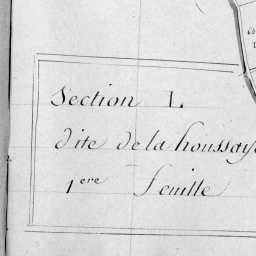 Section L
dite de la houssaye
1ere feuille